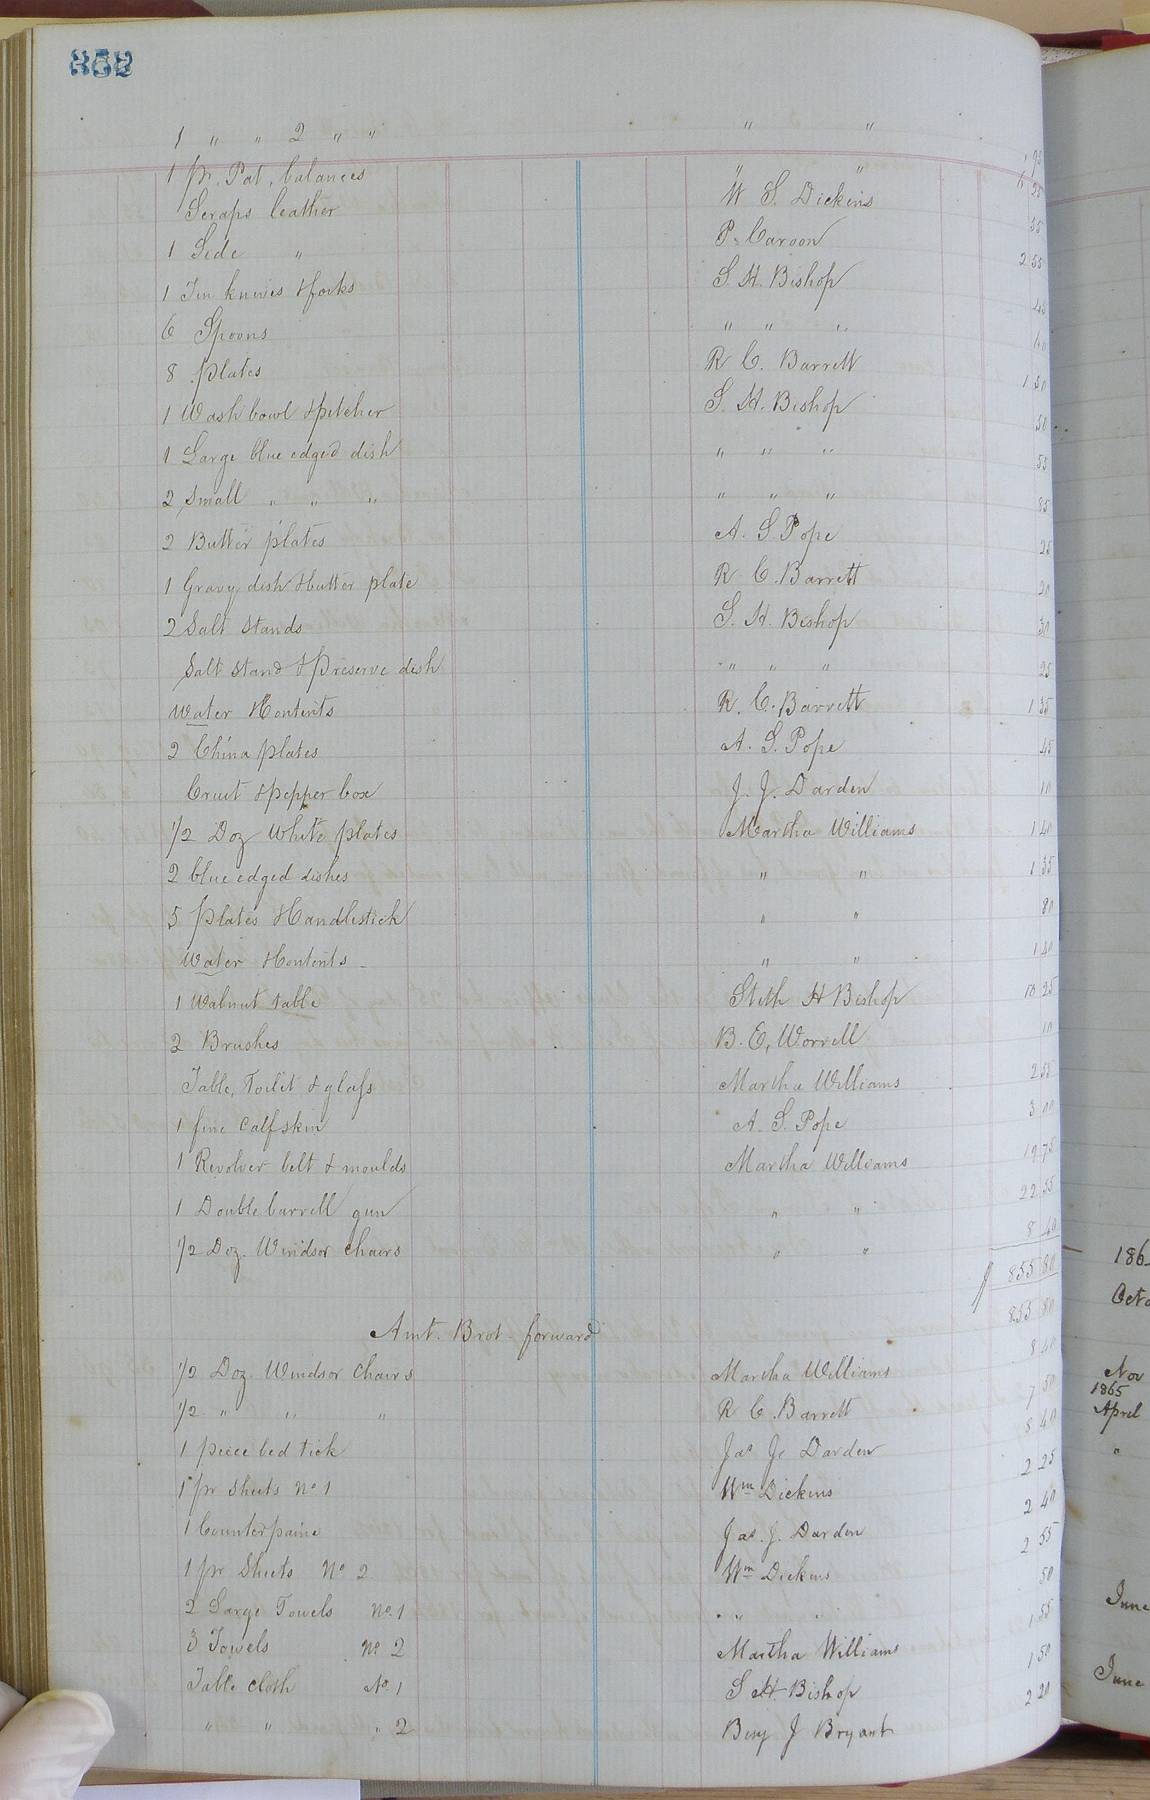 352
1 " " 2 " " " " 95
1 pr. Pat. balances " " 25
Scraps leather W S. Dickins 55
1 Side " P. Caroon 2 55
1 Tin knives & forks S. H. Bishop 45
6 Spoons " " "
8 plates R C. Barrett 1 50
1 Wash bowl & pitcher S. H. Bishop 50
1 Large blue edged dish " " " 55
2 Small " " " " " " 85
2 Butter plates A. S. Pope 25
1 Gravy dish & butter plate R C. Barrett 20
2 Salt stands S. H. Bishop 30
Salt stand & Preserve dish " " " 25
Water & Contents R. C. Barrett 1 35
2 China plates A. S. Pope 45
Cruit & pepper box J. J. Darden 10
1/2 Doz White plates Martha Williams 1 40
2 blue edged dishes " " 1 35
5 plates & Candlestick " " 80
Water & Contents " " 1 40
1 Walnut table Stith H Bishop 10 25
2 Brushes B. E. Worrell 10
Table, Toilet & glass Martha Williams 2 55
1 fine Calfskin A. S. Pope 3 00
1 Revolver belt & moulds Martha Williams 19 75
1 Double barrell gun " " 22 55
1/2 Doz. Windsor chairs " " 8 40
855 80
Amt. Brot. forward 855 80
1/2 Doz. Windsor Chairs Martha Williams 8 40
1/2 " " " R C. Barrett 7 50
1 piece bed tick Jas J. Darden 8 40
1 pr sheets No 1 Wm Dickins 2 25
1 Counterpaine Jas. J. Darden 2 40
1 pr Sheets No 2 Wm Dickins 2 55
2 Large Towels No. 1 " " 50
3 Towels No 2 Martha Williams 1 55
Table cloth No. 1 S H Bishop 1 50
" " " 2 Benj J Bryant 2 20
186
Octo
Nov
1865
April
"
June
June